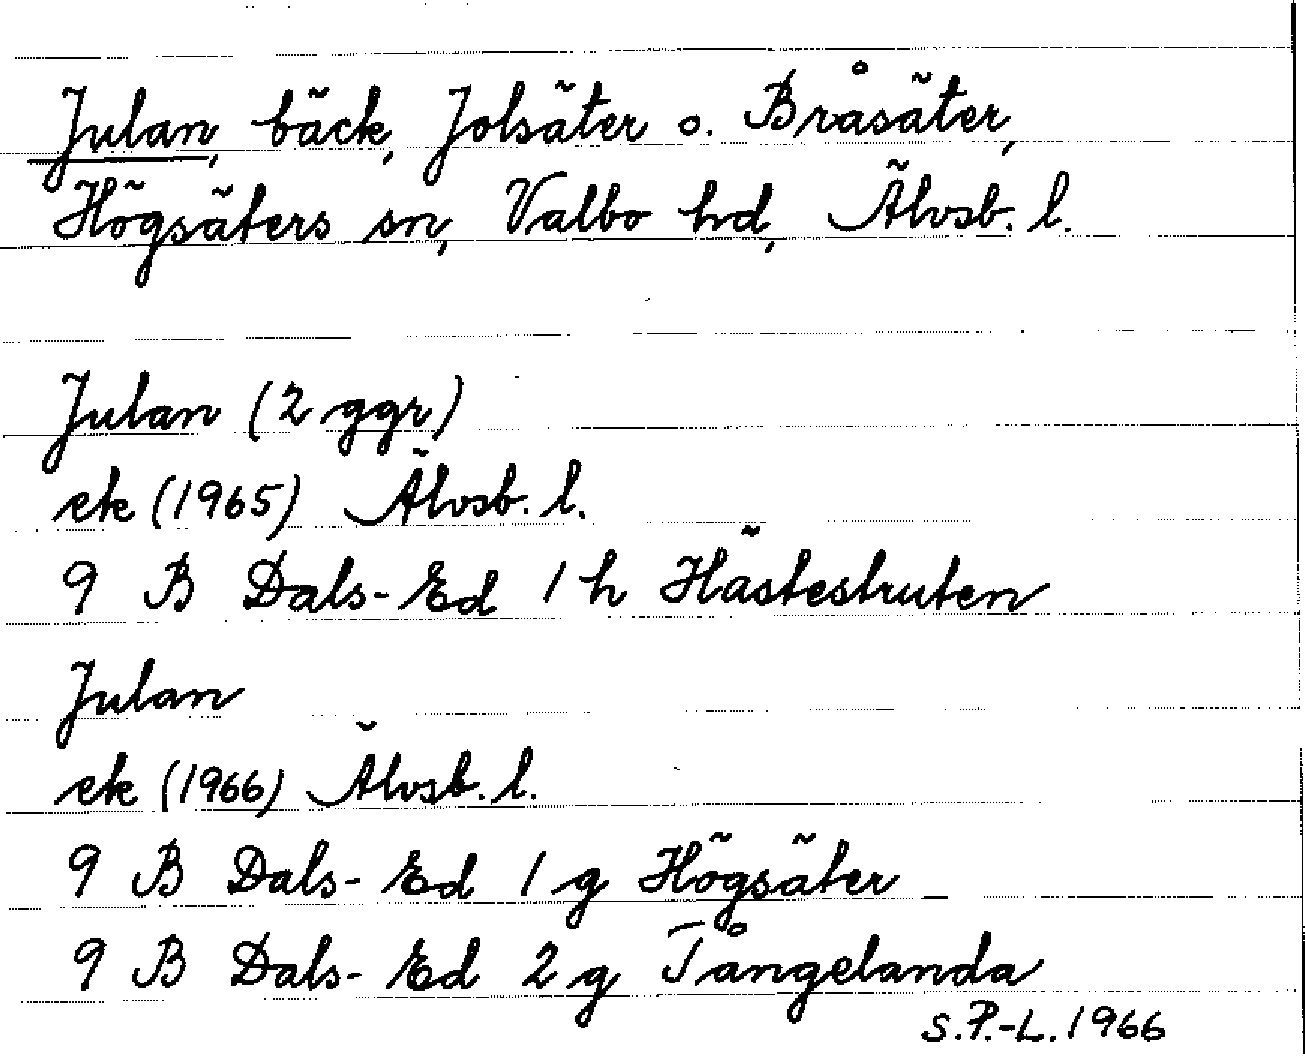 Julan, bäck, Jolsäter o. Bråsäter,
Högsäters sn, Valbo hd, Älvsb. l.
Julan (2 ggr)
ek (1965) Älvsb. l.
9 B Dals-Ed 1 h Hästestruten
Julan
ek (1966) Älvsb. l.
9 B Dals-Ed 1 g Högsäter
9 B Dals-Ed 2 g Tångelanda
S.P.-L. 1966